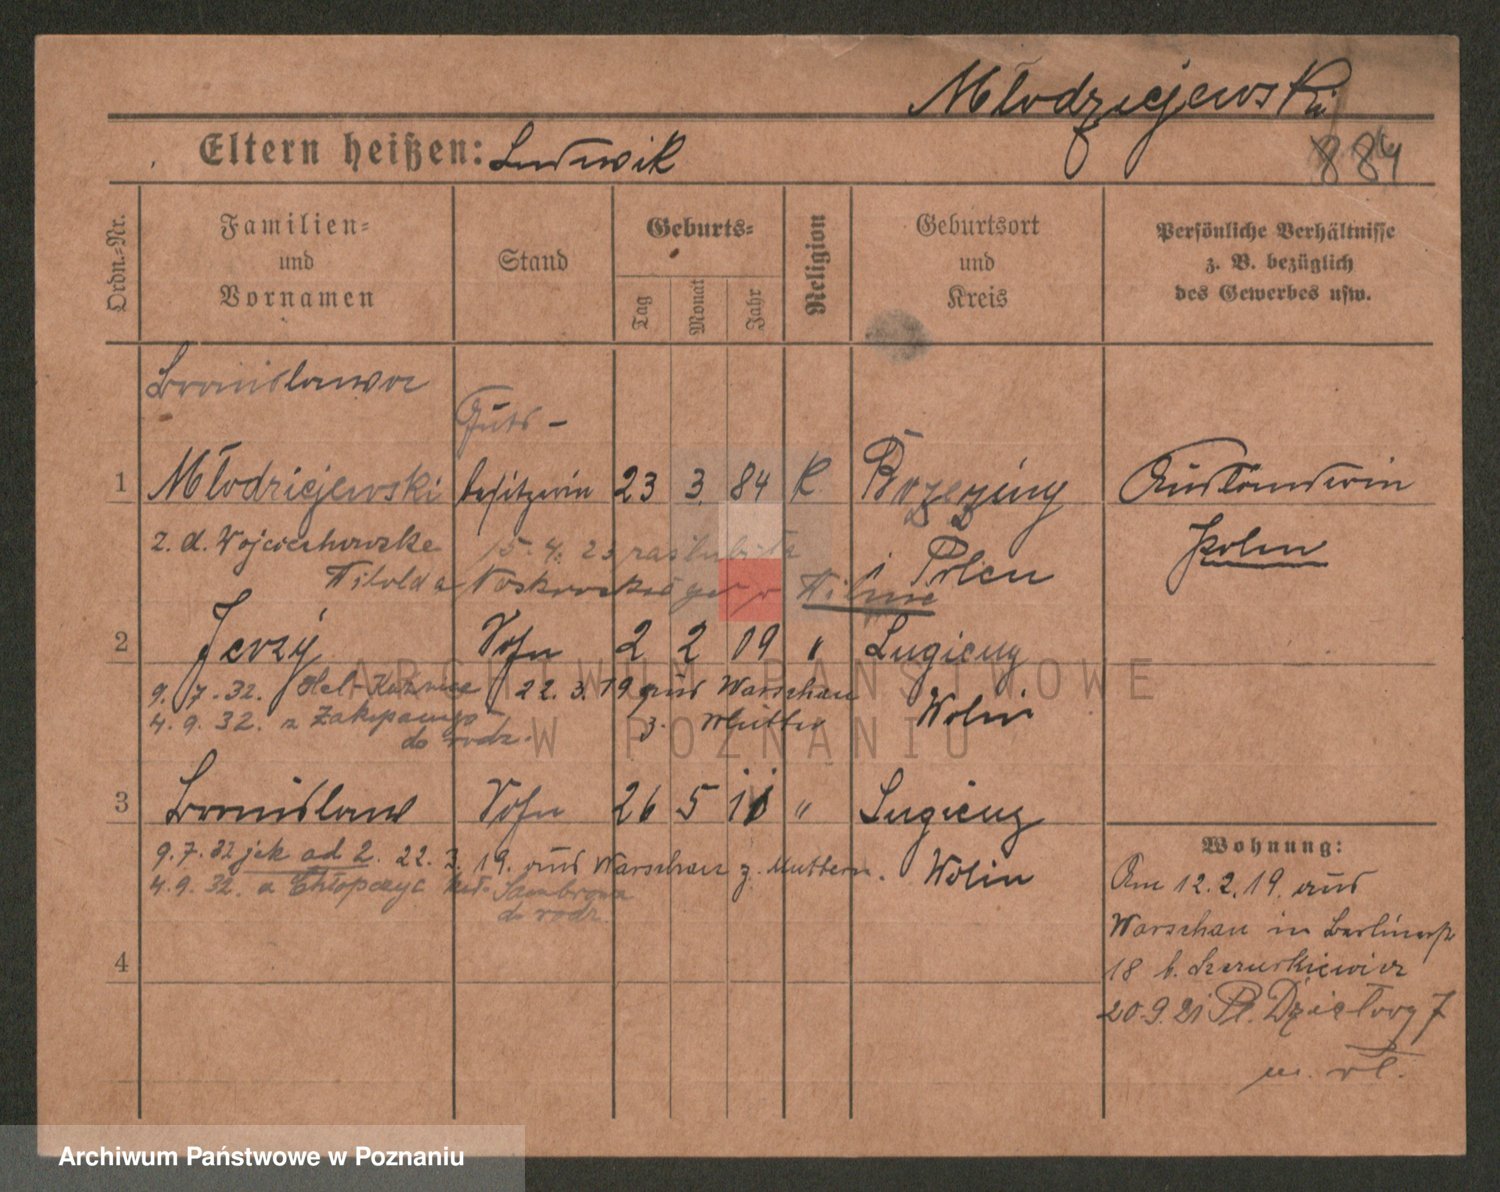 Młodziejewski
884
Eltern heißen: Ludwik
Ordn.-Nr.
Familien- und Vornamen
Stand
Geburts-
Tag
Monat
Jahr
Religion
Geburtsort und Kreis
Persönliche Verhältnisse
z. B. bezüglich
des Gewerbes usw.
Bronislawa
Guts-
1 Młodziejewski besitzerin 23 3. 84 K Ausländerin
z. d. Wojciechowske 15. 4. 23 zaślubiła Polen
Witolda w Wilnie Polen
2 Jerzy Sohn 2 2 09 " Lugieny
9. 7. 32. Hel- 22. 3. 19 aus Warschau Wolin
4. 9. 32. z Zakopanego z. Mutter
do rodz.
3 Bronislaw Sohn 26 5 11 " Lugieny
9. 7. 32 jak od 2. 22. 3. 19. aus Warschau z. Muttern. Wolin
4. 9. 32. z
do rodz.
4
Wohnung:
Am 12. 2. 19. aus
Warschau in Berlinerstr
18 b.
20. 9. 21 Pl. Działowy 7
m. wł.
ARCHIWUM PAŃSTWOWE
W POZNANIU
Archiwum Państwowe w Poznaniu